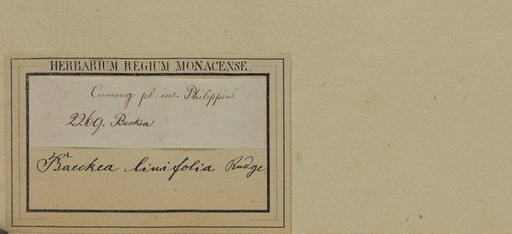 HERBARIUM REGIUM MONACENSE.
Cuming pl. ins. Philippin.
2269. Beckea
Baeckea linifolia Rudge